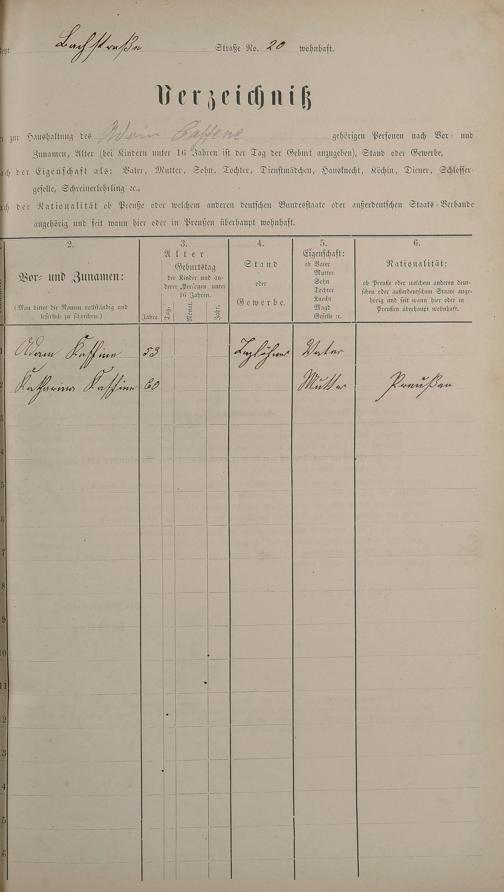 Bachstraße Straße No. 20 wohnhaft.
Verzeichniß
zur Haushaltung des Adam gehörigen Personen nach Vor- und
Zunamen, Alter (bei Kindern unter 16 Jahren ist der Tag der Geburt anzugeben), Stand oder Gewerbe,
nach der Eigenschaft als: Vater, Mutter, Sohn, Tochter, Dienstmädchen, Hausknecht, Köchin, Diener, Schlosser-
geselle, Schreinerlehrling ꝛc.,
nach der Nationalität ob Preuße oder welchem anderen deutschen Bundesstaate oder außerdeutschen Staats-Verbande
angehörig und seit wann hier oder in Preußen überhaupt wohnhaft.
2.
Vor- und Zunamen:
(Man bittet die Namen vollständig und
leserlich zu schreiben.)
3.
Alter
Geburtstag
der Kinder und an-
derer Personen unter
16 Jahren.
Jahre. Tag. Monat. Jahr.
4.
Stand
oder
Gewerbe.
5.
Eigenschaft:
ob Vater
Mutter
Sohn
Tochter
Knecht
Magd
Geselle ꝛc.
6.
Nationalität:
ob Preuße oder welchem anderen deut-
schen oder außerdeutschen Staate ange-
hörig und seit wann hier oder in
Preußen überhaupt wohnhaft.
1 Adam 53 Taglöhner Vater
2 Katharina 60 Mutter Preußen
3
4
5
6
7
8
9
10
11
2
3
4
5
6